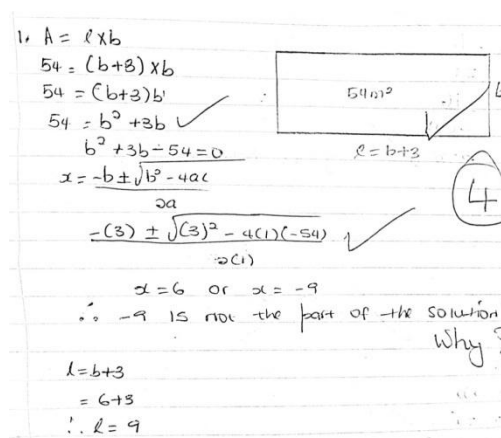 1. A = l×b
54 = (b+3) ×b
54 = (b+3)b
54 = b² +3b
b² +3b-54=0
x = -b ± √b² - 4ac
2a
-(3) ± √(3)² - 4(1)(-54)
2(1)
x=6 or x = -9
∴ -9 is not the part of the solution
Why?
l=b+3
= 6+3
∴ l = 9
54m²
b
l = b+3
4